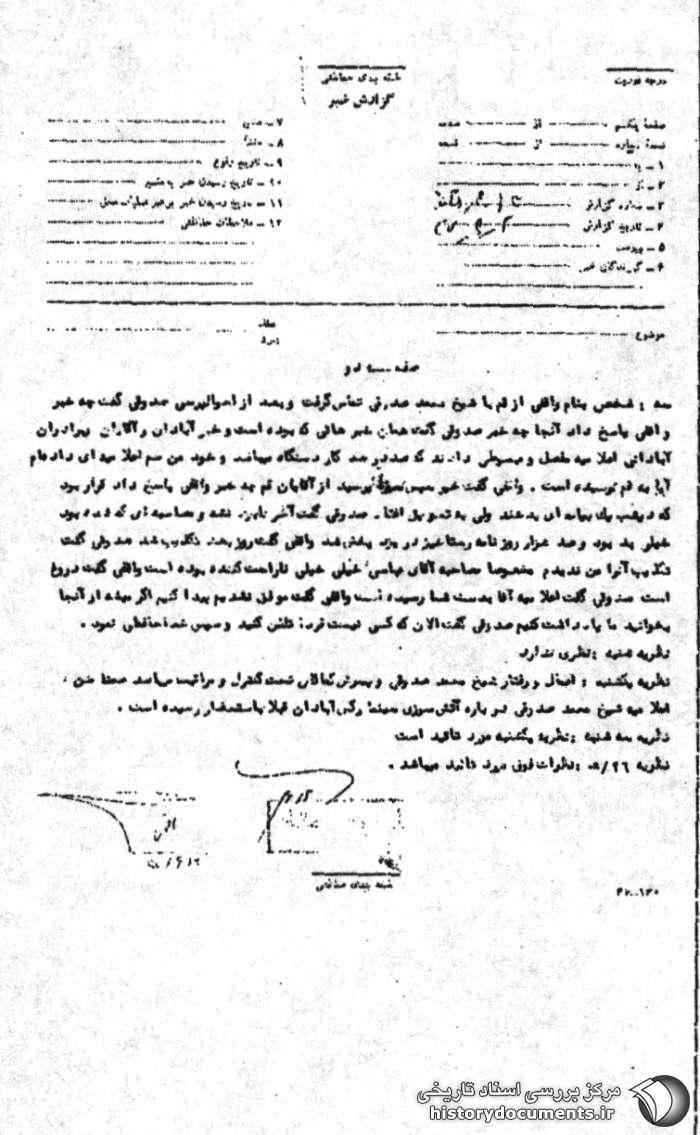 درجه فوریت
طبقه بندی حفاظتی
گزارش خبر
صفحهٔ یکمی از صفحه
نسخهٔ شماره از نسخه
۱ـ به
۲ـ از
۳ـ شماره گزارش
۴ـ تاریخ گزارش
۵ـ پیوست
۶ـ گیرندگان خبر
۷ـ
۸ـ منشأ
۹ـ تاریخ وقوع
۱۰ـ تاریخ رسیدن خبر به منبع
۱۱ـ تاریخ رسیدن خبر برهبر عملیات محل
۱۲ـ ملاحظات حفاظتی
موضوع
صفحه دو
شخصی بنام واثقی از قم با شیخ محمد صدوقی تماس گرفت و بعد از احوالپرسی صدوقی گفت چه خبر
واثقی پاسخ داد آنجا چه خبر صدوقی گفت همان خبر هائی که بوده است و خبر آبادان و آقایان برادران
آبادانی اعلامیه مفصل و مبسوطی دادند که صددرصد کار دستگاه میباشد و خود من هم اعلامیه ای داده‌ام
آیا به قم نرسیده است . واثقی گفت خیر سپس صدوقی پرسید از آقایان قم چه خبر واثقی پاسخ داد قرار بود
که دیشب یک بیانیه ای بدهند ولی به تعویق افتاد . صدوقی گفت آخر نشد و مصاحبه ای که شده بود
خیلی بد بود و صد هزار روزنامه رستاخیز در یزد پخش شد واثقی گفت روز بعد تکذیب شد صدوقی گفت
تکذیب آنرا من ندیدم مخصوصا مصاحبه آقای عباسی خیلی خیلی ناراحت کننده بوده است واثقی گفت دروغ
است صدوقی گفت اعلامیه آقا بدست شما رسیده است واثقی گفت موفق نشدیم پیدا کنیم اگر میشد از آنجا
بخوانید ما یادداشت کنیم صدوقی گفت الان که کسی نیست فردا تلفن کنید و سپس خداحافظی نمود .
نظریه شنبه : نظری ندارد
نظریه یکشنبه : اعمال و رفتار شیخ محمد صدوقی و پسرش کماکان تحت کنترل و مراقبت میباشد ضمنا متن
اعلامیه شیخ محمد صدوقی درباره آتش سوزی سینما رکس آبادان قبلا باستحضار رسیده است .
نظریه سه شنبه : نظریه یکشنبه مورد تائید است
نظریه ۲۶/ه : نظرات فوق مورد تائید میباشد .
طبقه بندی حفاظتی
مرکز بررسی اسناد تاریخی
historydocuments.ir